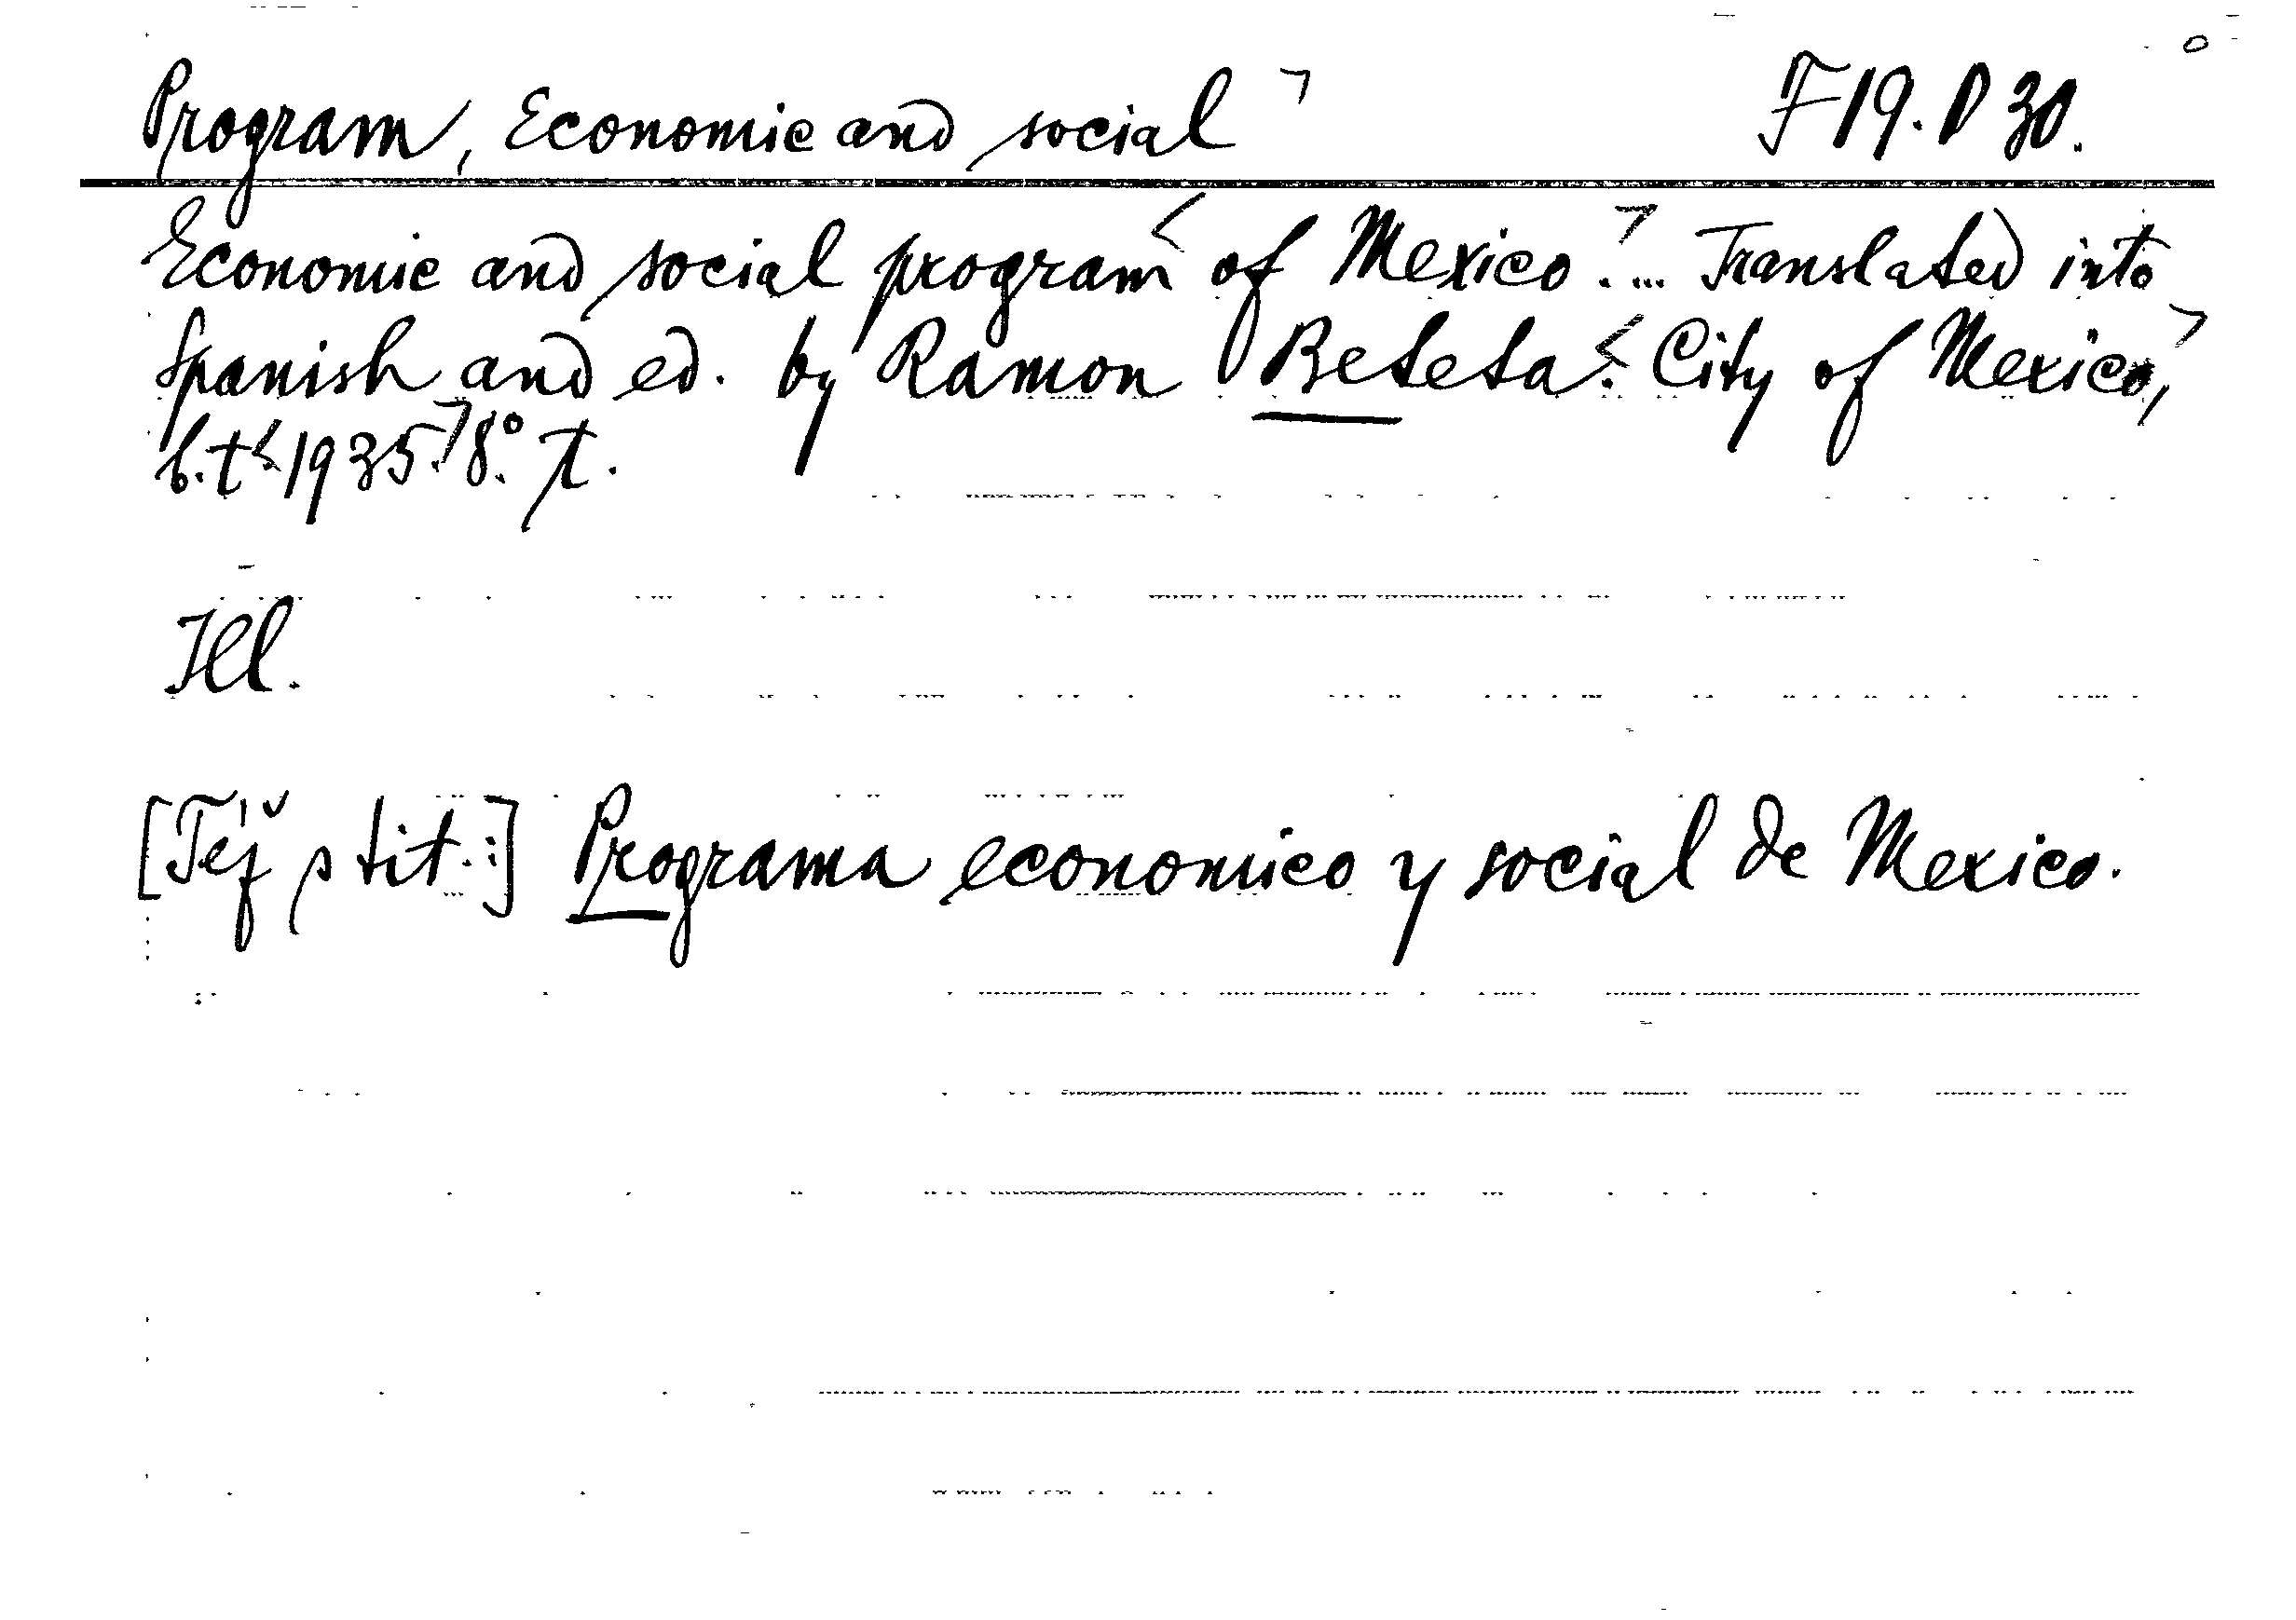 Program, Economic and social ⌝ F 19. D 30.
Economic and social program < of Mexico. ⌝ ... Translated into
Spanish and ed. by Ramon Beteta. < City of Mexico, ⌝
b.t. < 1935. ⌝ 8.° T.
Ill.
[Též s tit.:] Programa economico y social de Mexico.